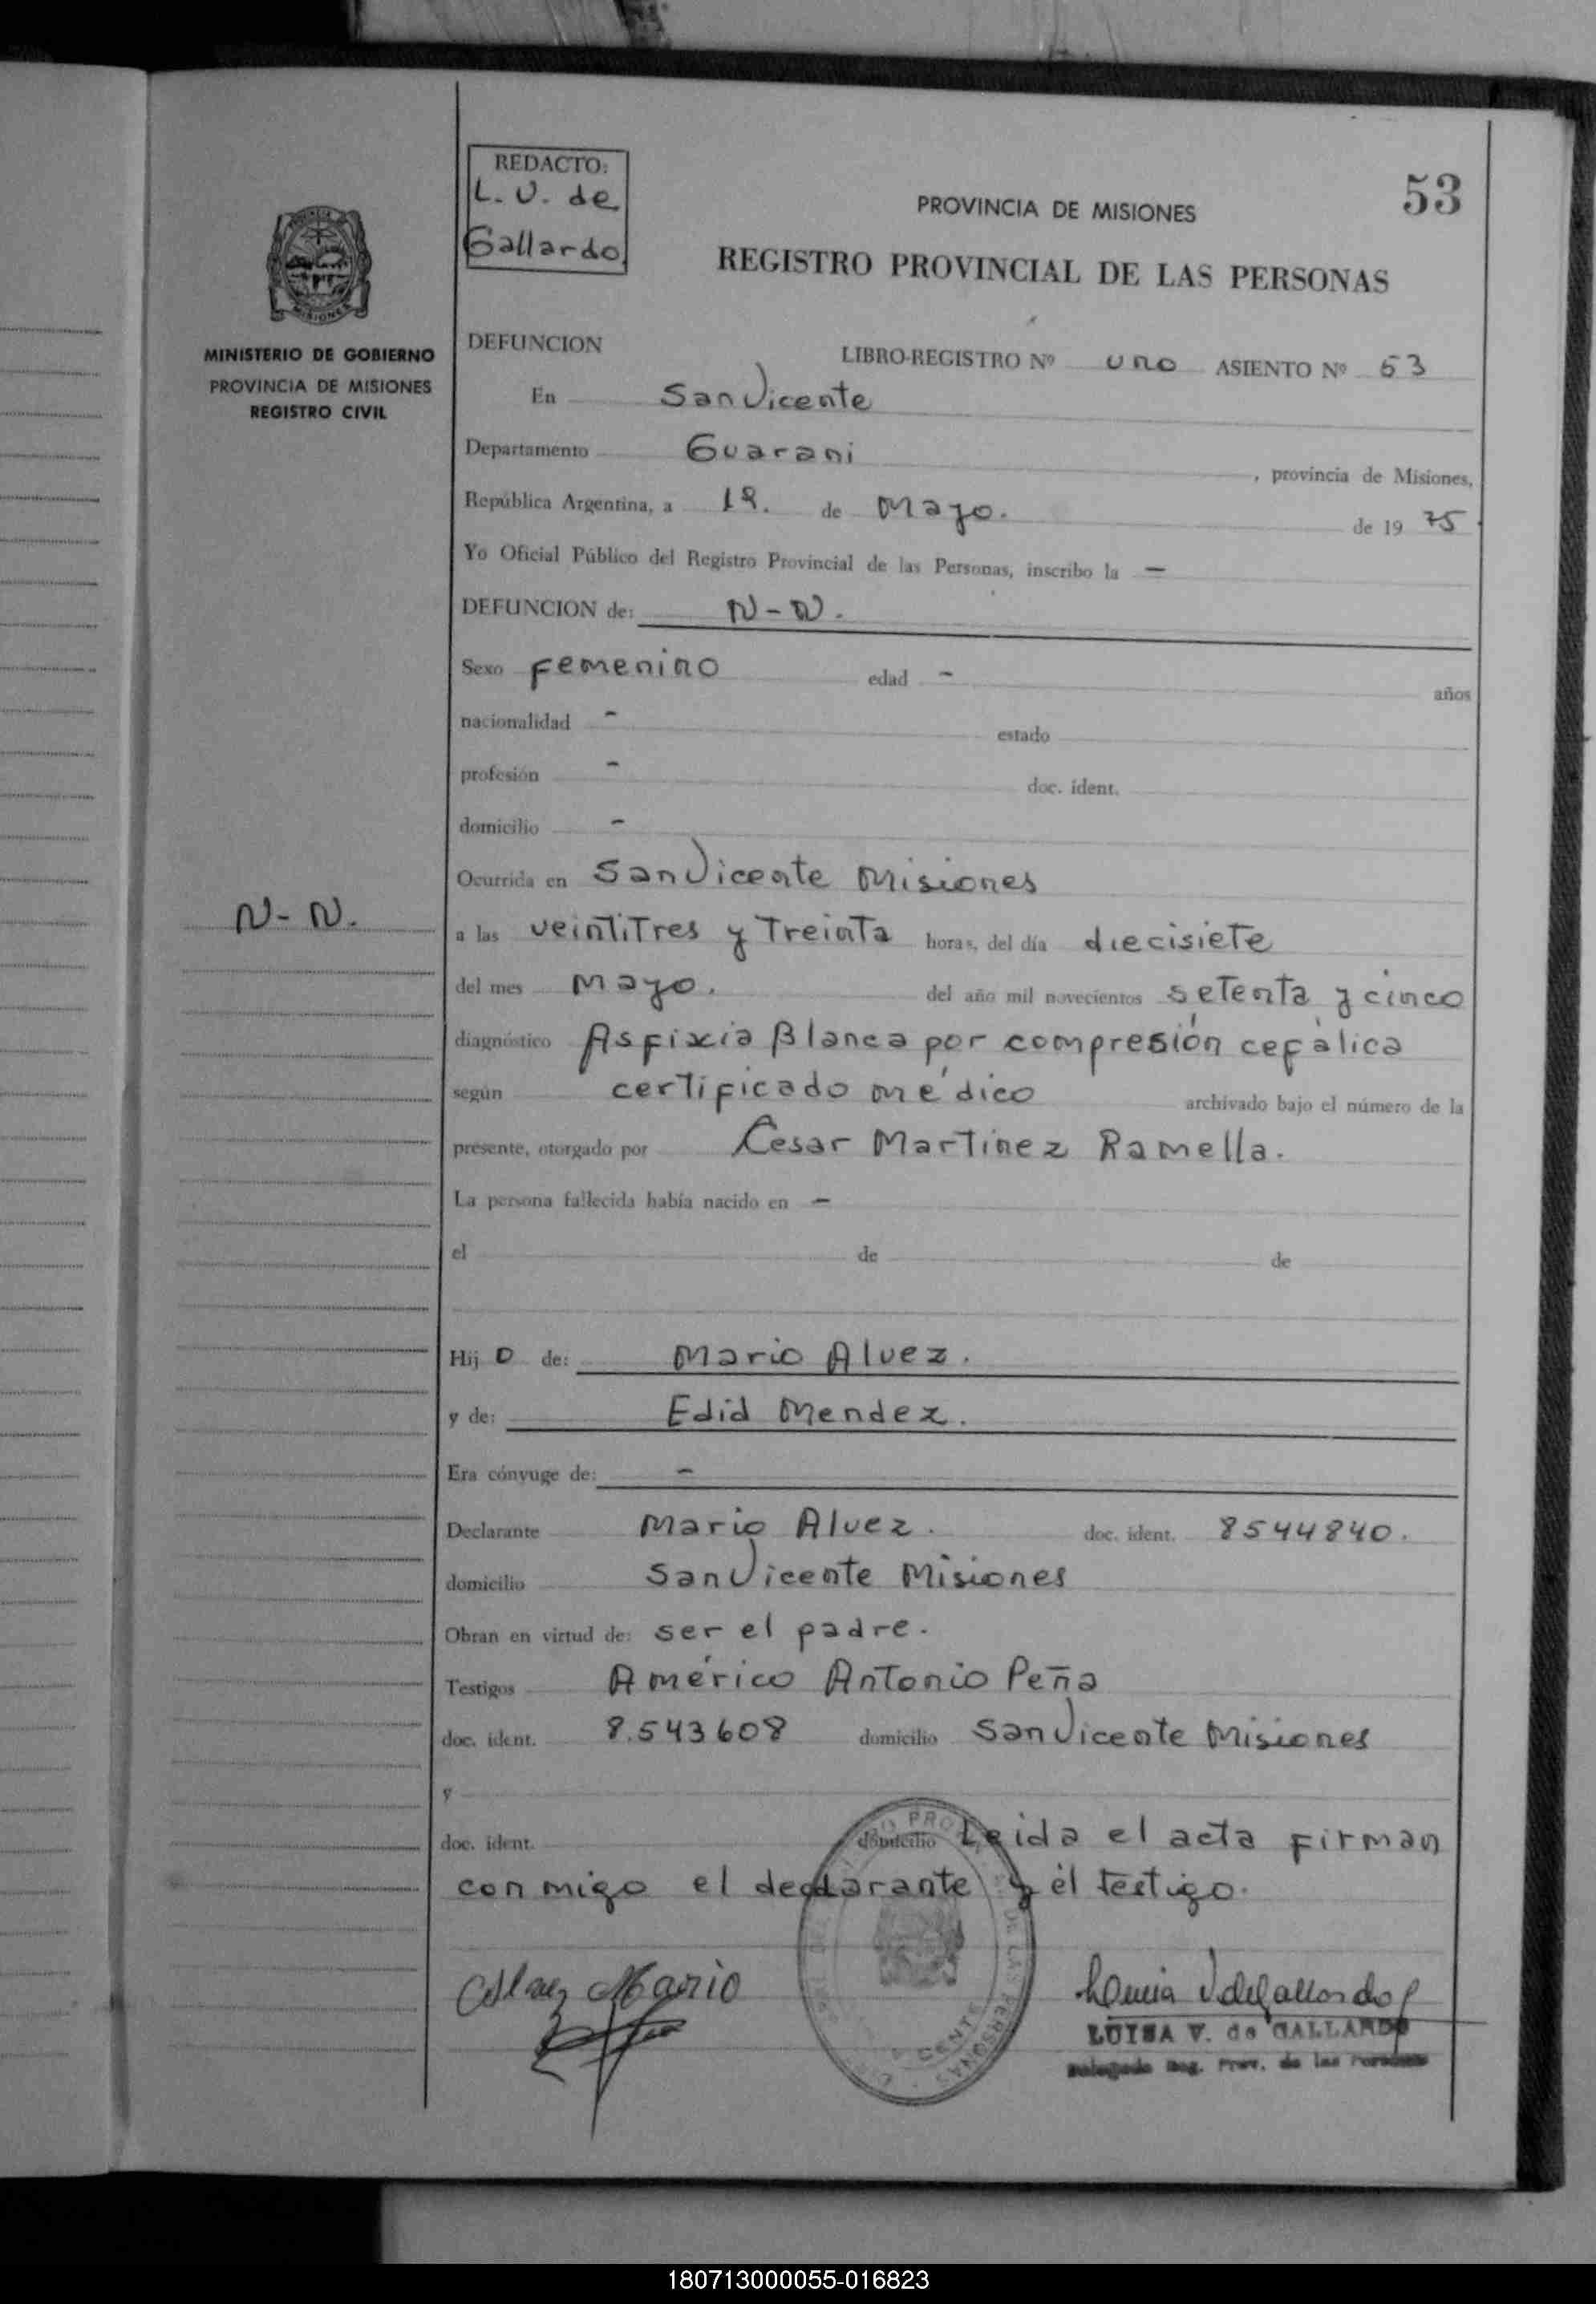 REDACTO:
L. V. de
Gallardo
PROVINCIA DE MISIONES
53
REGISTRO PROVINCIAL DE LAS PERSONAS
MISIONES
MINISTERIO DE GOBIERNO
PROVINCIA DE MISIONES
REGISTRO CIVIL
DEFUNCION
LIBRO-REGISTRO Nº uno ASIENTO Nº 53
En San Vicente
Departamento Guarani , provincia de Misiones,
República Argentina, a 19. de Mayo. de 19 75
Yo Oficial Público del Registro Provincial de las Personas, inscribo la –
DEFUNCION de: N-N.
Sexo Femenino edad - años
nacionalidad - estado
profesión - doc. ident.
domicilio -
Ocurrida en San Vicente Misiones
N-N.
a las veintitres y treinta horas, del día diecisiete
del mes Mayo. del año mil novecientos setenta y cinco
diagnóstico Asfixia Blanca por compresión cefálica
según certificado médico archivado bajo el número de la
presente, otorgado por Cesar Martinez Ramella.
La persona fallecida había nacido en –
el de de
Hij o de: Mario Alvez.
y de: Edid Mendez.
Era cónyuge de: -
Declarante Mario Alvez. doc. ident. 8544840.
domicilio San Vicente Misiones
Obran en virtud de: ser el padre.
Testigos Américo Antonio Peña
doc. ident. 8.543608 domicilio San Vicente Misiones
y
doc. ident. domicilio Leida el acta firman
conmigo el declarante y él testigo.
Alvez Mario
LUISA V. de GALLARDO
Delegada Reg. Prov. de las Personas
180713000055-016823